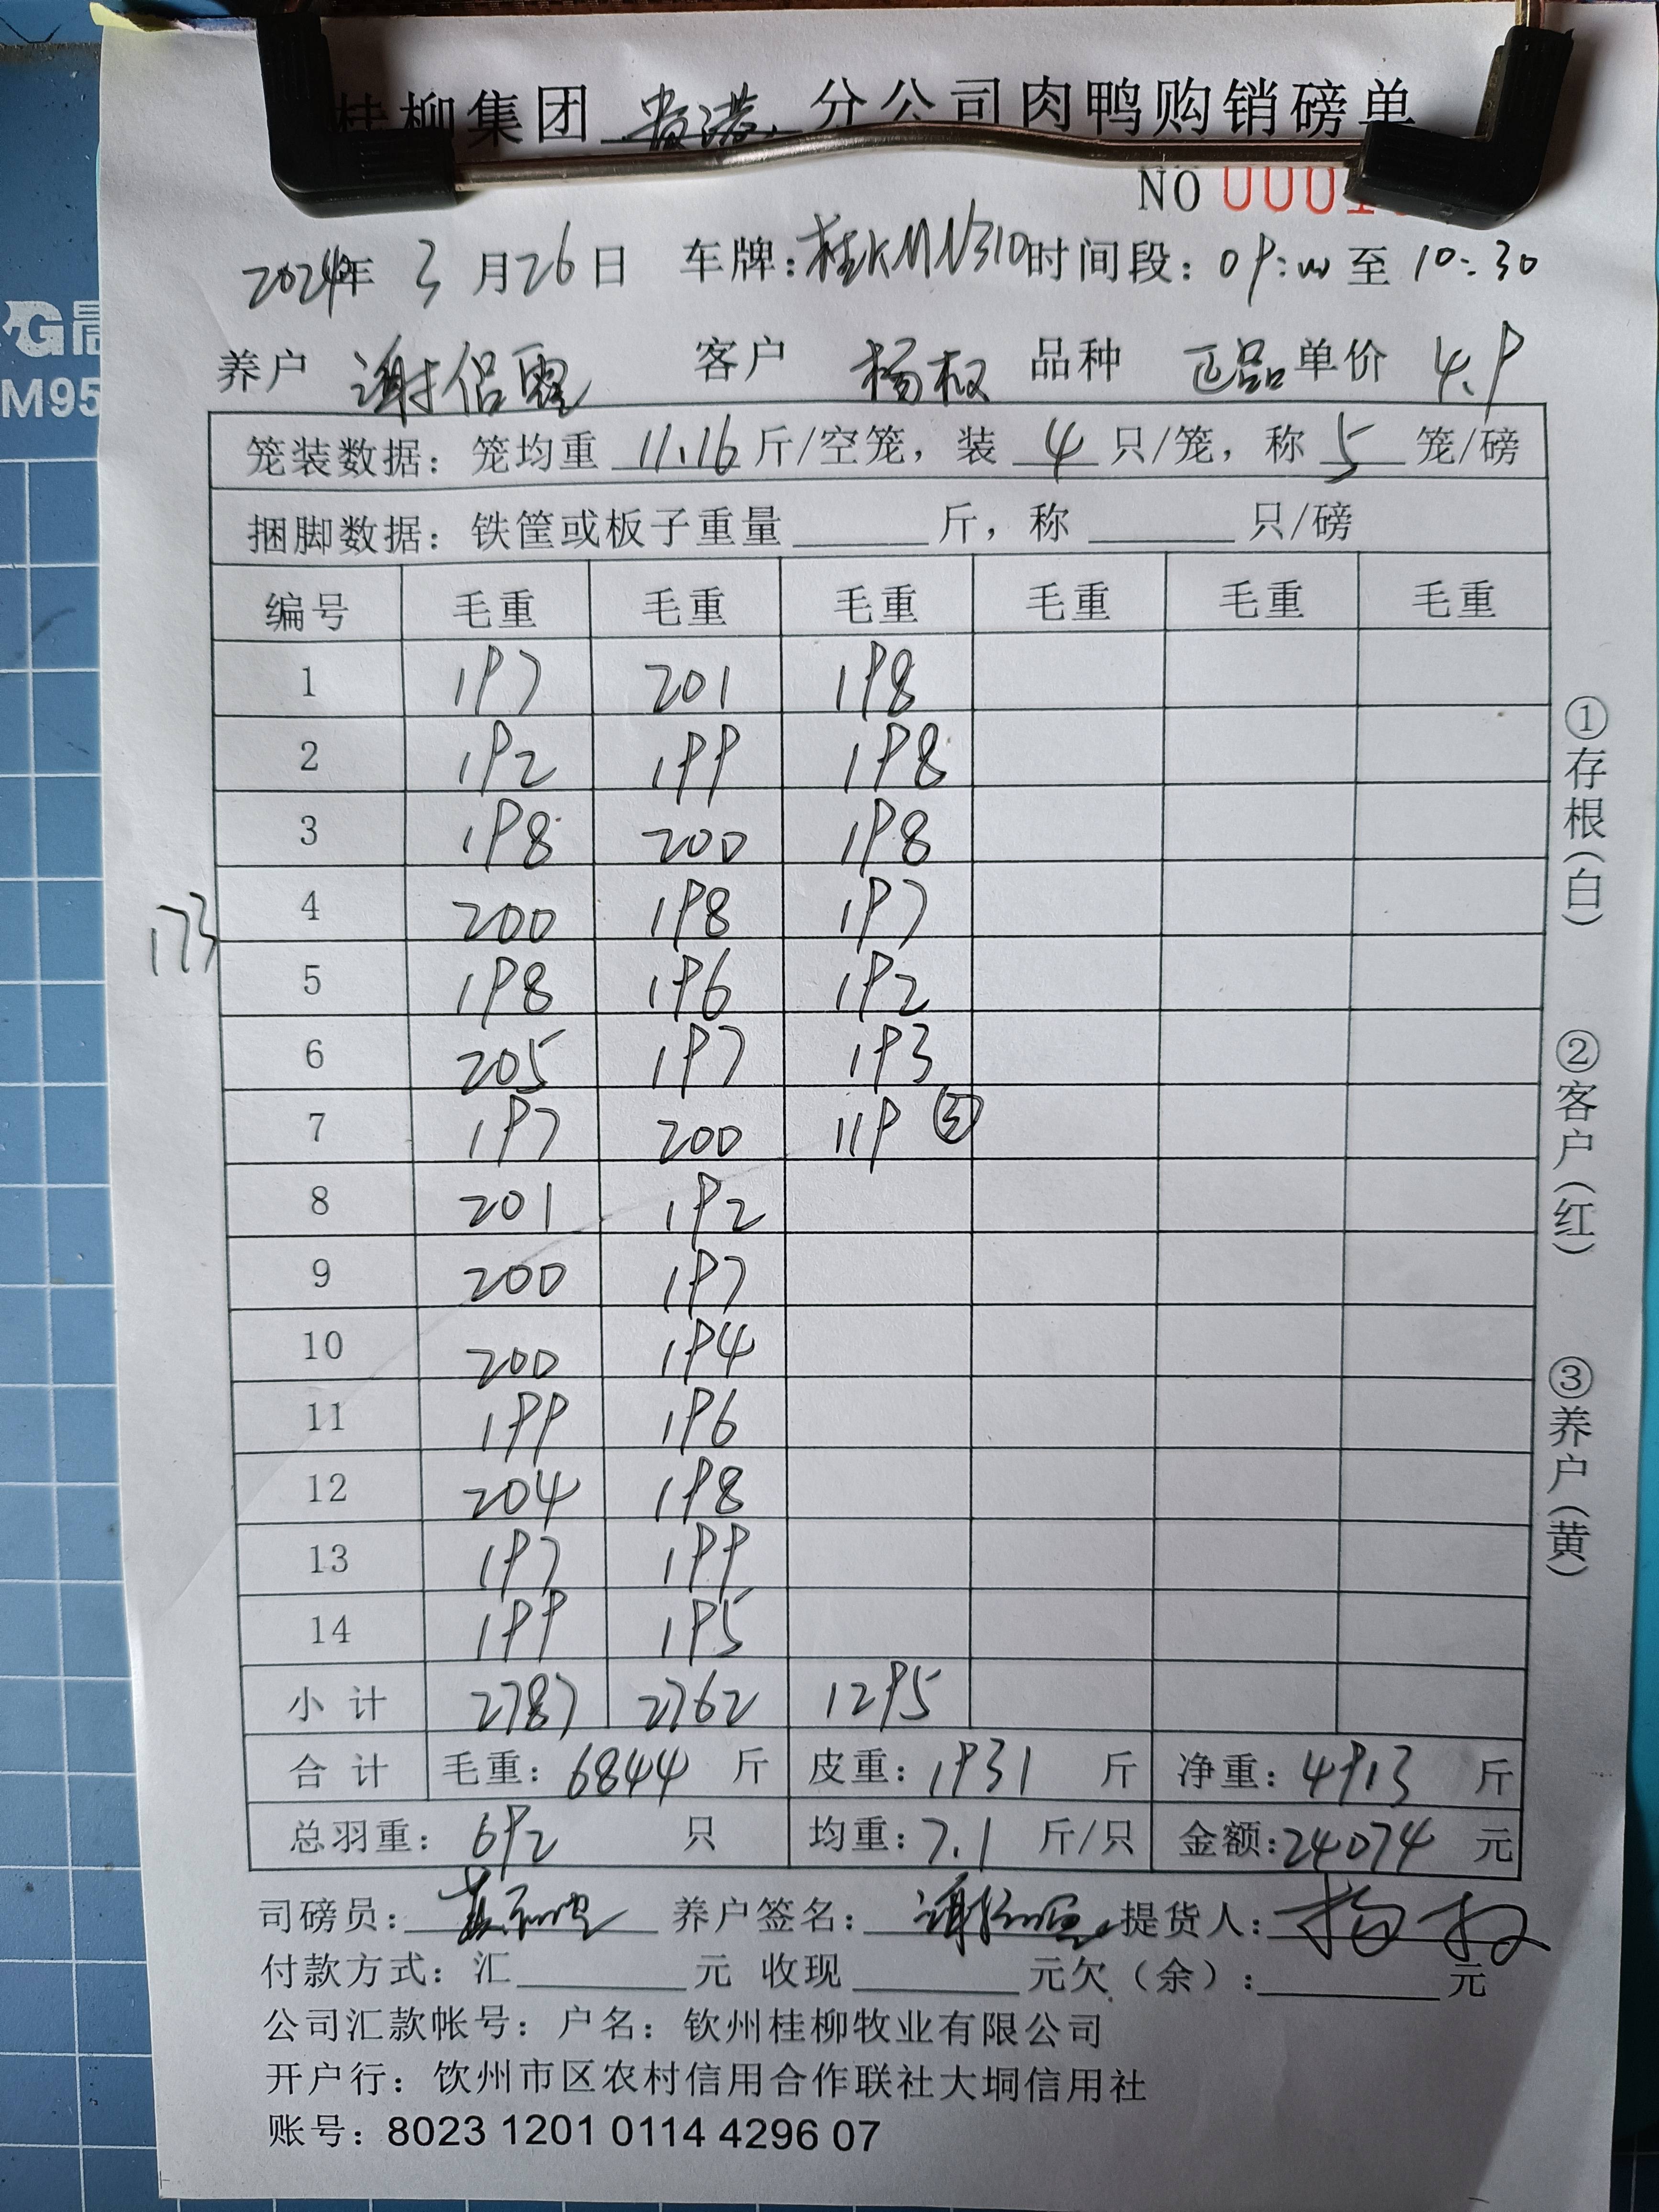 桂柳集团 贵港 分公司肉鸭购销磅单
NO 0001
2024年 3 月 26 日 车牌: 桂KMN310 时间段: 09:00 至 10:30
养户 谢侣霞 客户 杨权 品种 正品 单价 4.9
笼装数据: 笼均重 11.16 斤/空笼, 装 4 只/笼, 称 5 笼/磅
捆脚数据: 铁筐或板子重量 斤, 称 只/磅
编号 毛重 毛重 毛重 毛重 毛重 毛重
1 197 201 198
2 192 199 198
3 198 200 198
173
4 200 198 197
5 198 196 192
6 205 197 193
7 197 200 119 ③
8 201 192
9 200 197
10 200 194
11 199 196
12 204 198
13 197 199
14 199 195
小计 2787 2762 1295
合计 毛重: 6844 斤 皮重: 1931 斤 净重: 4913 斤
总羽重: 692 只 均重: 7.1 斤/只 金额: 24074 元
司磅员: 养户签名: 提货人: 杨权
付款方式: 汇 元 收现 元欠(余): 元
公司汇款帐号: 户名: 钦州桂柳牧业有限公司
开户行: 钦州市区农村信用合作联社大垌信用社
账号: 8023 1201 0114 4296 07
①存根(白)
②客户(红)
③养户(黄)
M95